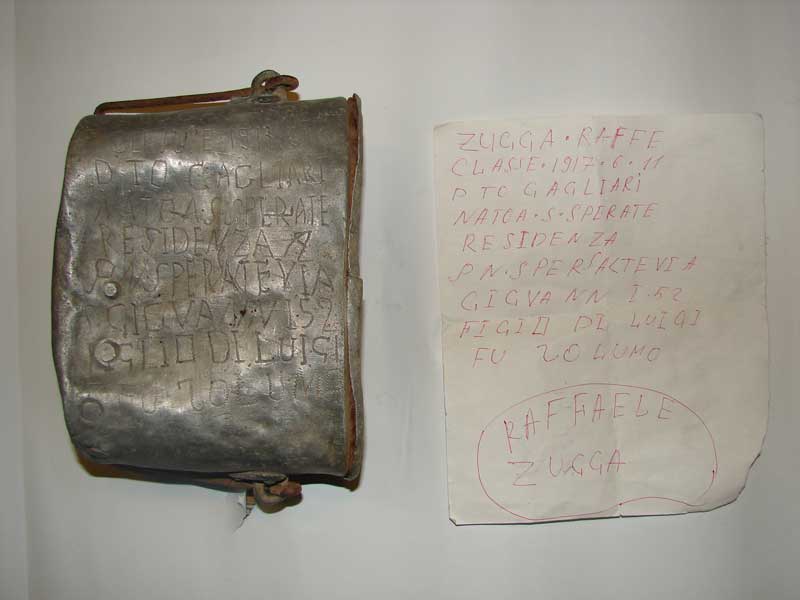 CLASSE 1917
D TO GAGLIARI
NATOA S SPERATE
RESIDENZA
SPERATE VIA
GIGVANNI.52
FIGLIO DI LUIGI
FU ZOLUM
ZUGGA. RAFFE
CLASSE. 1917. 6. 11
D TO GAGLIARI
NATOA. S. SPERATE
RESIDENZA
PN. SPERSACTEVIA
GIGVANN I. 52
FIGIO DI LUIGI
FU ZOLUMO
RAFFAELE
ZUGGA